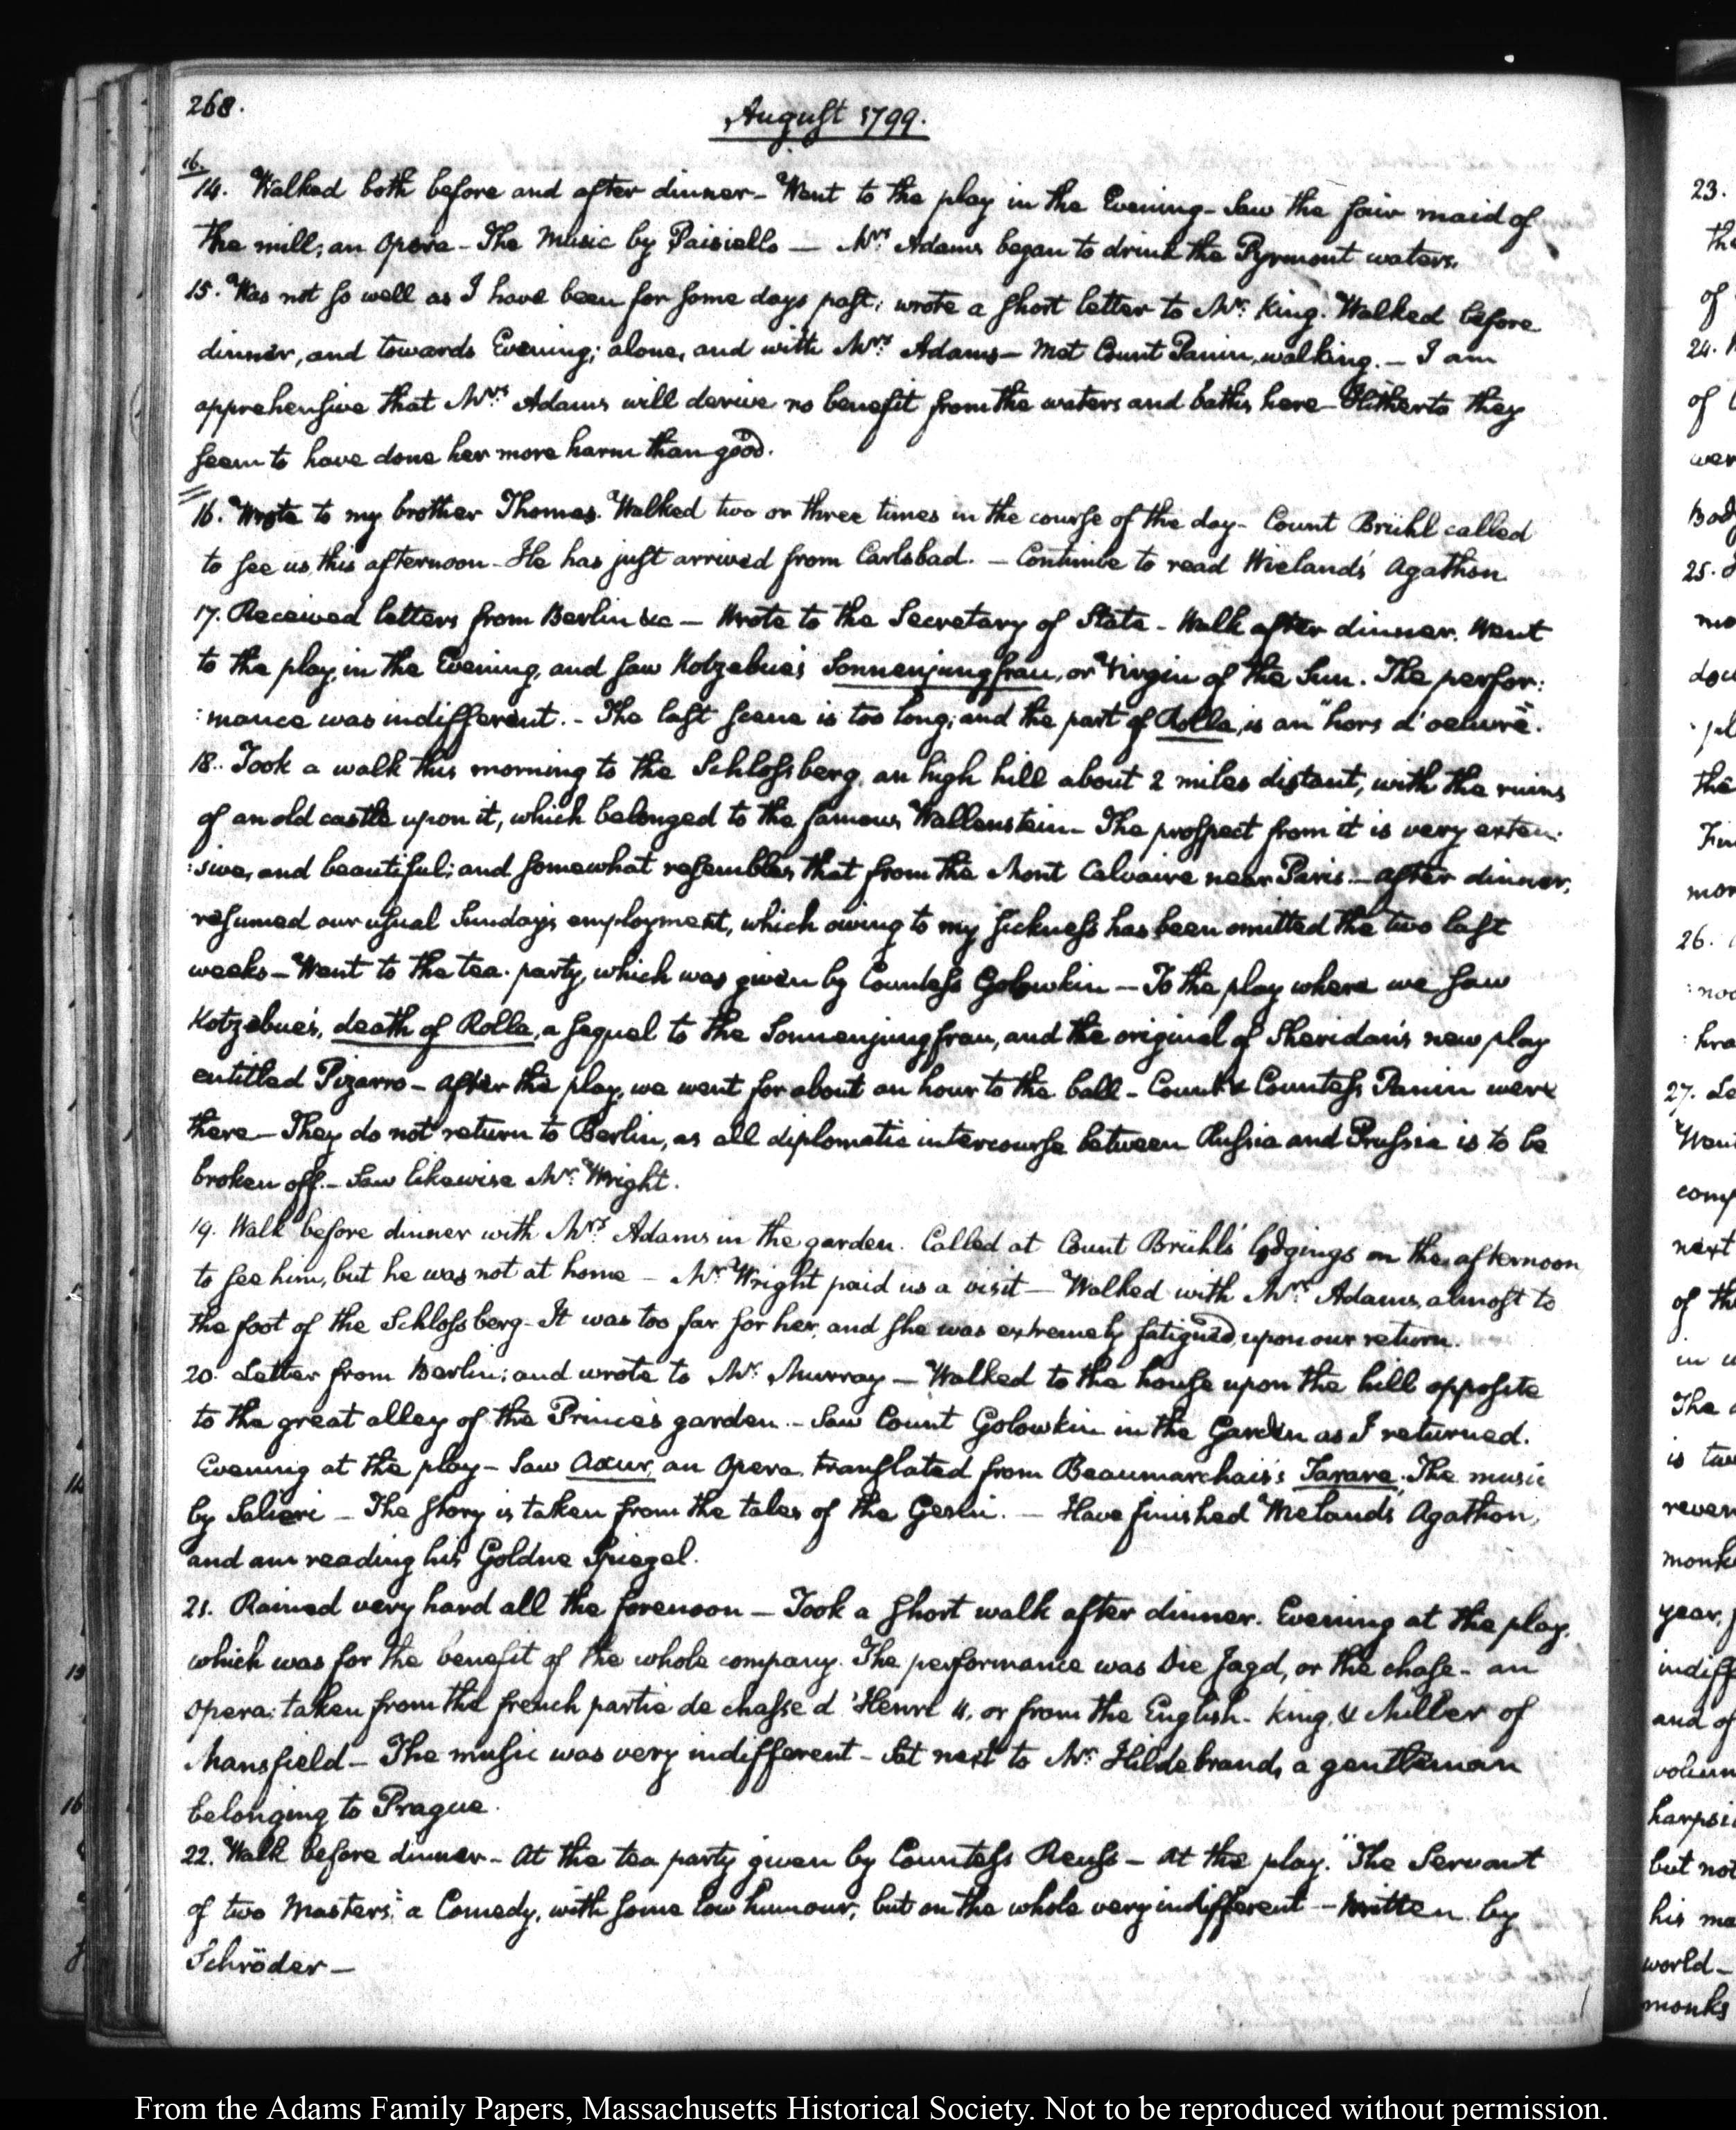 268.
August 1799.
16.
14. Walked both before and after dinner — Went to the play in the Evening — Saw the fair maid of
the mill; an Opera — The Music by Paisiello — Mrs. Adams began to drink the Pyrmont waters.
15. Was not so well as I have been for some days past; wrote a short letter to Mr. King. Walked before
dinner, and towards Evening; alone, and with Mrs. Adams — Met Count Panin, walking. — I am
apprehensive that Mrs. Adams will derive no benefit from the waters and baths here — Hitherto they
seem to have done her more harm than good.
16. Wrote to my brother Thomas. Walked two or three times in the course of the day — Count Brühl called
to see us, this afternoon — He has just arrived from Carlsbad. — Continue to read Wieland's Agathon.
17. Received letters from Berlin &c — Wrote to the Secretary of State — Walk after dinner. Went
to the play, in the Evening, and saw Kotzebue's Sonnenjungfrau, or Virgin of the Sun. The perfor:
:mance was indifferent. — The last scene is too long; and the part of Rolla, is an "hors d'oeuvre".
18. Took a walk this morning to the Schlossberg, an high hill about 2 miles distant, with the ruins
of an old castle upon it, which belonged to the famous Wallenstein — The prospect from it is very exten:
:sive, and beautiful; and somewhat resembles that from the Mont Calvaire near Paris — After dinner,
resumed our usual Sunday's employment, which owing to my sickness has been omitted the two last
weeks — Went to the tea-party, which was given by Countess Golowkin — To the play where we saw
Kotzebue's, death of Rolla, a sequel to the Sonnenjungfrau, and the original of Sheridan's new play
entitled Pizarro — After the play, we went for about an hour to the ball — Count & Countess Panin were
there — They do not return to Berlin, as all diplomatic intercourse between Russia and Prussia is to be
broken off. — Saw likewise Mr. Wright.
19. Walk before dinner with Mrs. Adams in the garden. Called at Count Brühl's lodgings in the afternoon
to see him, but he was not at home — Mr. Wright paid us a visit — Walked with Mrs. Adams, almost to
the foot of the Schlossberg — It was too far for her, and she was extremely fatigued, upon our return.
20. Letter from Berlin; and wrote to Mr. Murray — Walked to the house upon the hill opposite
to the great alley of the Prince's garden — Saw Count Golowkin in the Garden as I returned.
Evening at the play — Saw Axur, an Opera, translated from Beaumarchais's Tarare. The music
by Salieri — The story is taken from the tales of the Genii. — Have finished Wieland's Agathon,
and am reading his Goldne Spiegel.
21. Rained very hard all the forenoon — Took a short walk after dinner. Evening at the play,
which was for the benefit of the whole company. The performance was Die Jagd, or the chase — an
opera: taken from the french partie de chasse d'Henri 4, or from the English — King, & Miller of
Mansfield — The music was very indifferent — Sat next to Mr. Hildebrand, a gentleman
belonging to Prague.
22. Walk before dinner — At the tea party given by Countess Reuss — At the play. "The Servant
of two Masters;" a Comedy, with some low humour, but on the whole very indifferent — written by
Schröder —
From the Adams Family Papers, Massachusetts Historical Society. Not to be reproduced without permission.